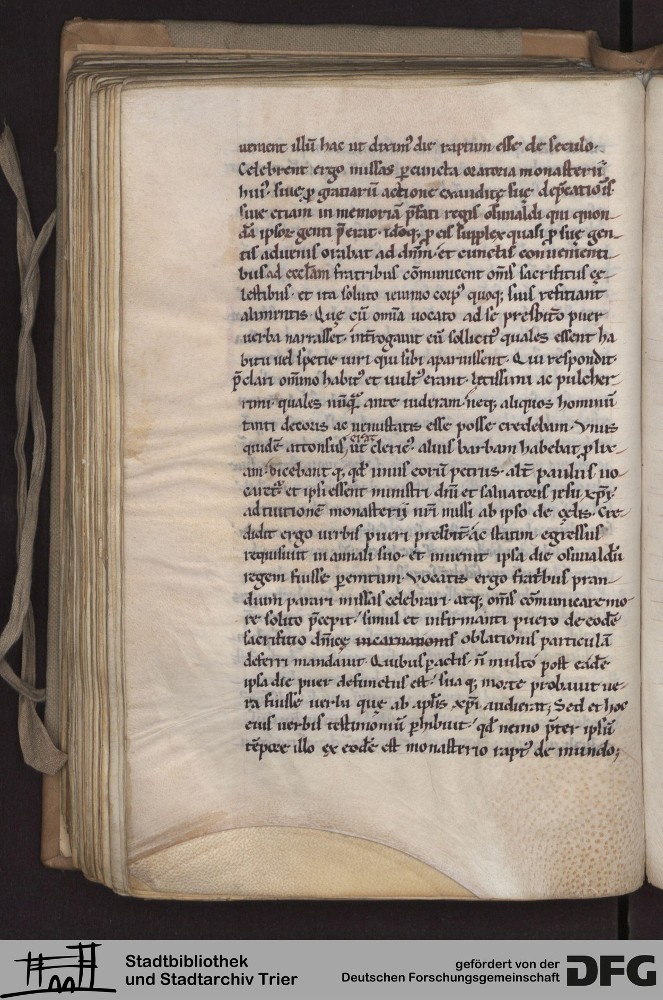 uenient illū hac ut diximꝰ die raptum esse de seculo·
Celebrent ergo missas ꝑ cuncta oratoria monasterii
huiꝰ· siue ꝓ gratiarū actione exauditę suę deꝑcationis·
siue etiam in memoriā p̄fati regis osuualdi qui quon
dā ipsoꝝ genti p̄erat· idoq; ꝓ eis supplex quasi ꝓ suę gen
tis aduenis orabat ad dn̄m· et cunctis conuenienti
bus ad eccl̄am fratribus cōmunicent om̄s sacrificiis cę
lestibus· et ita soluto ieiunio corpꝰ quoq; suis reficiant
alimentis· Quę cū om̄ia uocato ad se presbit̄o puer
uerba narrasset· int̄rogauit eū sollicitꝰ quales essent ha
bitu uel spetie uiri qui sibi aparuissent· Qui respondit·
p̄clari omnino habitꝰ et uultꝰ erant· lętissimi ac pulcher
rimi· quales nūq̄ ante uideram· neq; aliquos hominū
tanti decoris ac uenustatis esse posse credebam· Vnus
quidē attonsus erat ut clericꝰ· alius barbam habebat prolix
am· dicebant q; qd̄ unus eorū petrus· alt̄ paulus uo
caret̄· et ipsi essent ministri dn̄i et saluatoris ihsu xp̄i·
ad tuitionē monasterii nr̄i missi ab ipso de cęlis· Cre
didit ergo uerbis pueri presbit̄· ac statim egressus
requisiuit in annali suo· et inuenit ipsa die osuualdū
regem fuisse ꝑemtum· Vocatis ergo frat̄bus pran
dium parari missas celebrari atq; om̄s cōmunicare mo
re solito p̄cepit· simul et infirmanti puero de eodē
sacrifitio dn̄icę incarnationis oblationis particulā
deferri mandauit· Quibus ꝑactis· n̄ multo post eadē
ipsa die puer defunctus est· sua q; morte probauit ue
ra fuisse uerba quę ab apl̄is xp̄i audierat; Sed et hoc
eius uerbis testimoniū ꝑhibuit· qd̄ nemo p̄ter ipsū
tēpore illo ex eodē est monasterio raptꝰ de mundo;
Stadtbibliothek
und Stadtarchiv Trier
gefördert von der
Deutschen Forschungsgemeinschaft
DFG